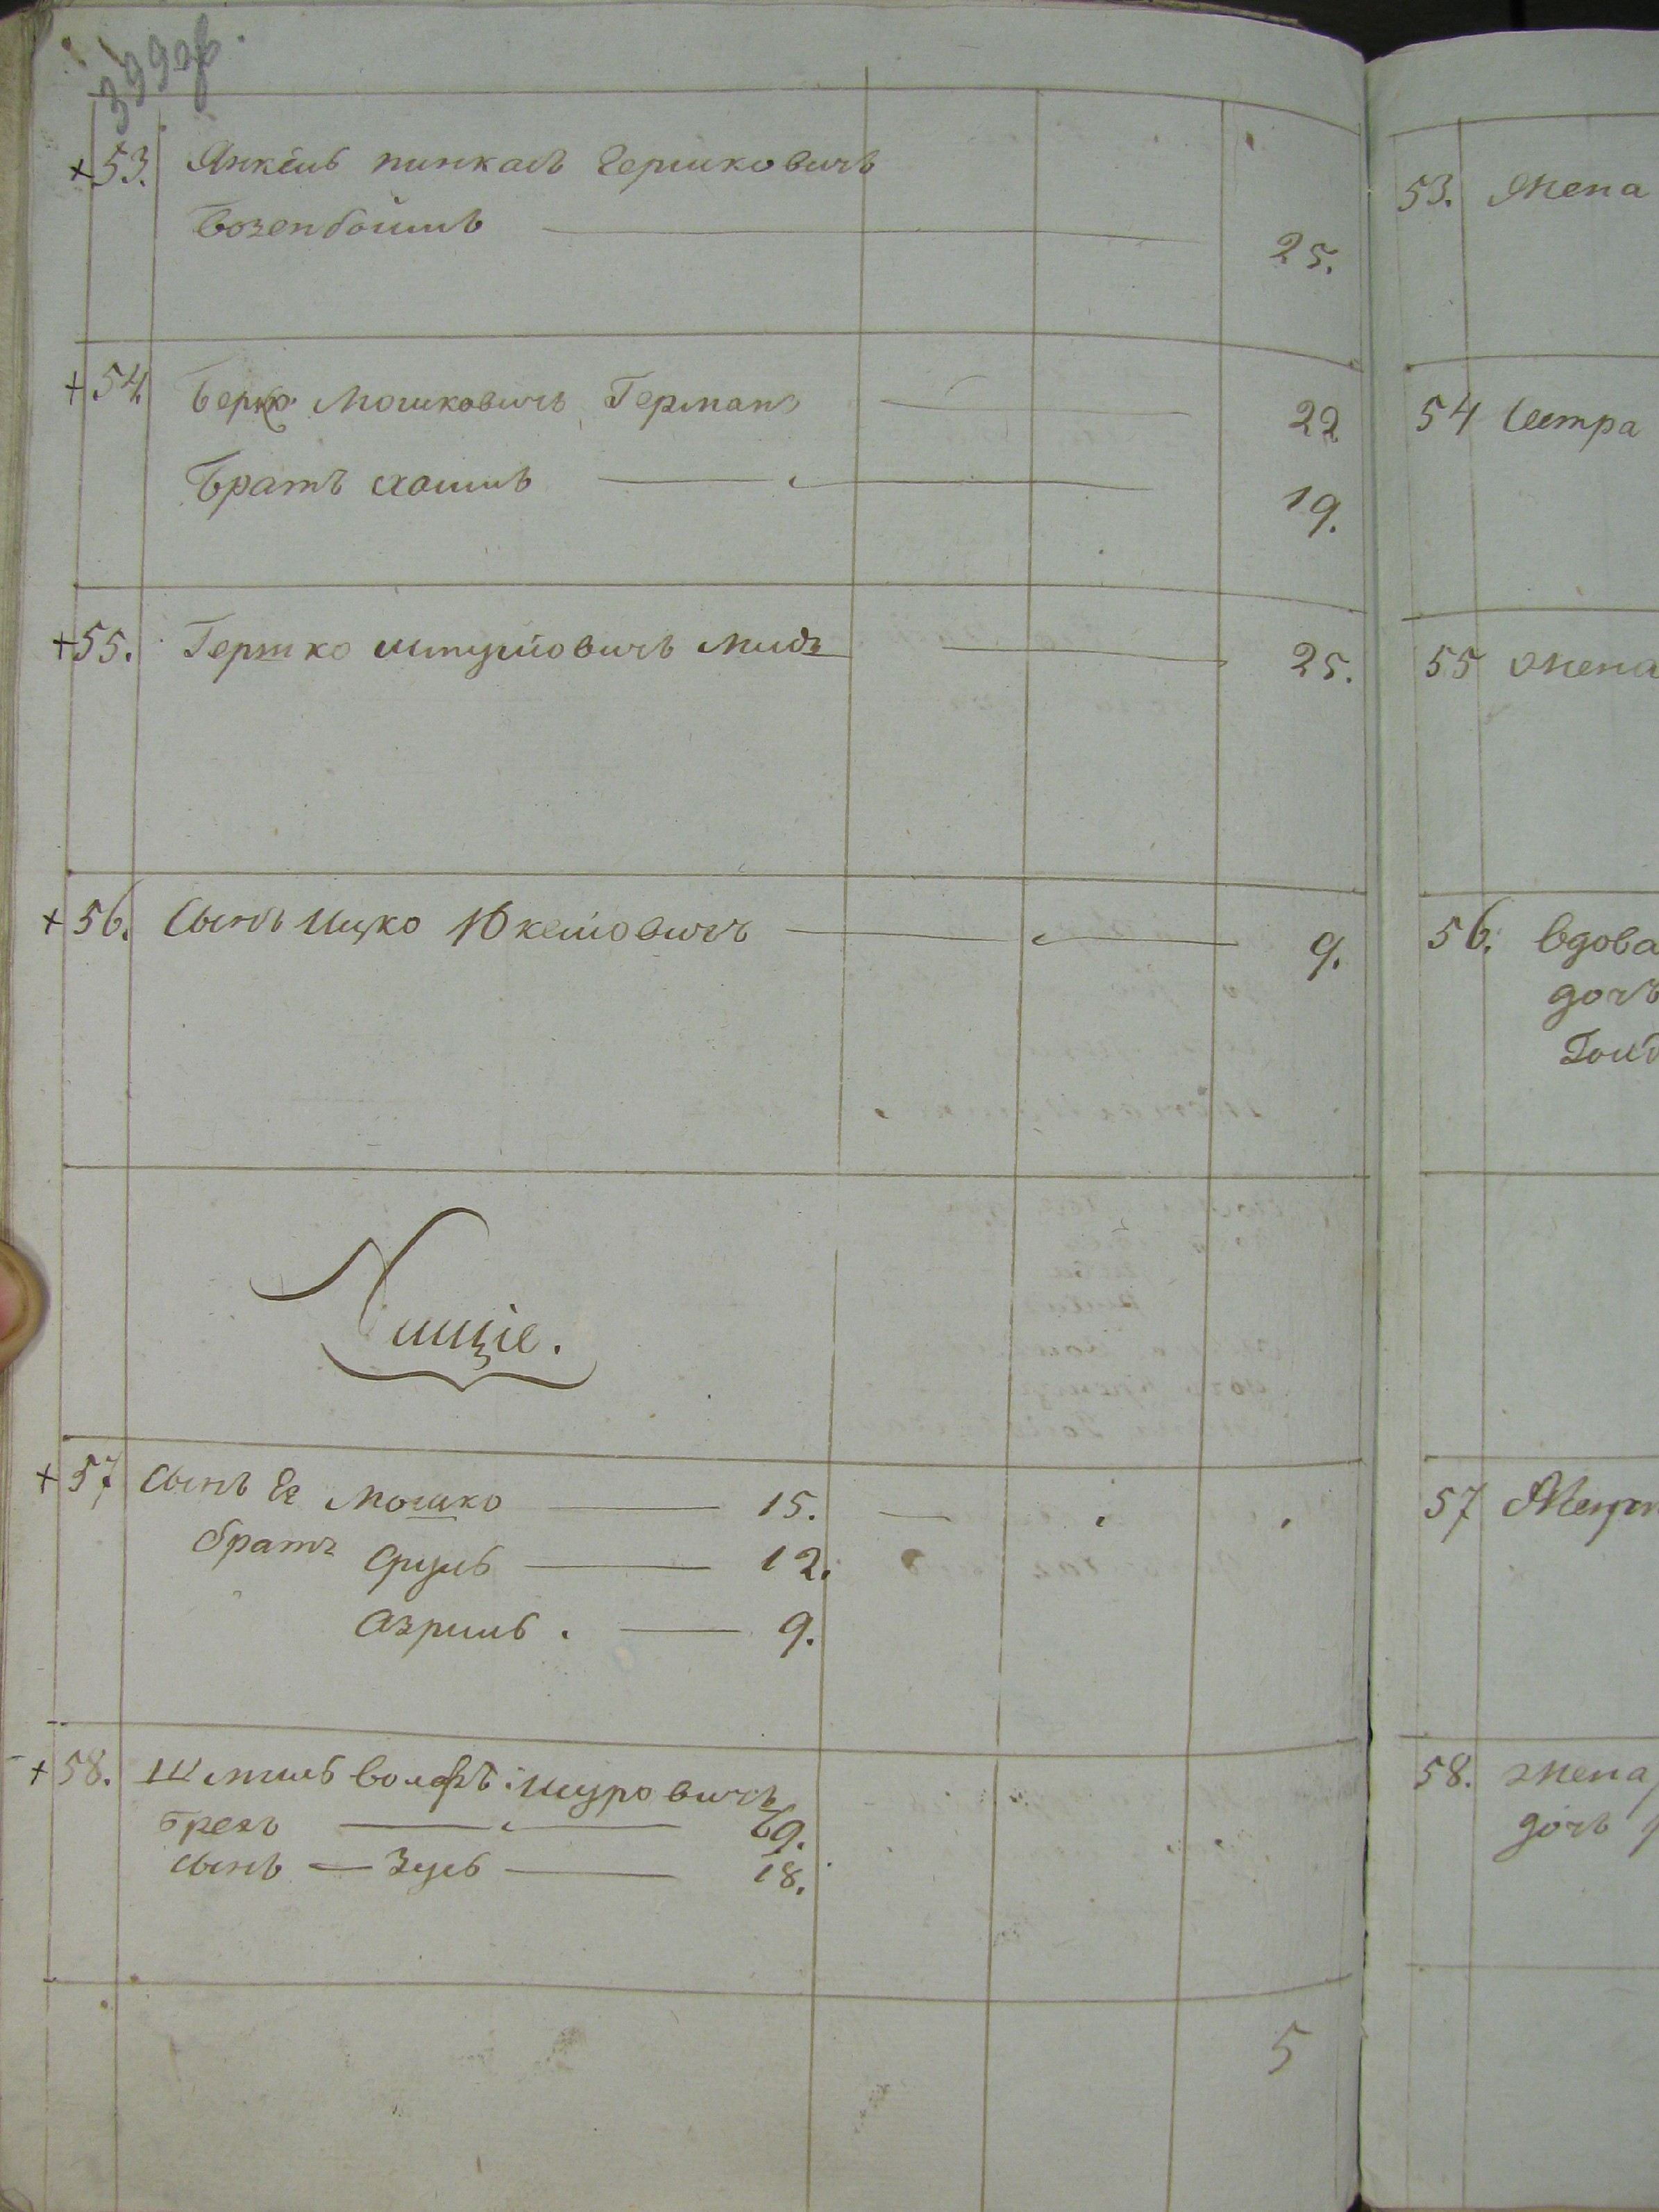 399 об.
+53. Янкель пинкасъ Гершковичъ
Розенбаимъ 25.
+54. Берко Мошковичъ Германъ 22
Братъ хаимъ 19.
+55. Гершко 25.
+56. Сынъ Ицко 9.
Нищіе.
+57 Сынъ Ее Мошко 15.
братъ Сруль 12.
Азриль. 9.
+58. Шмиль вольфъ
69.
сынъ Зусь 18.
5
53. Жена
54 Сестра
55 Жена
56. вдова
дочь
57
58. жена
дочь